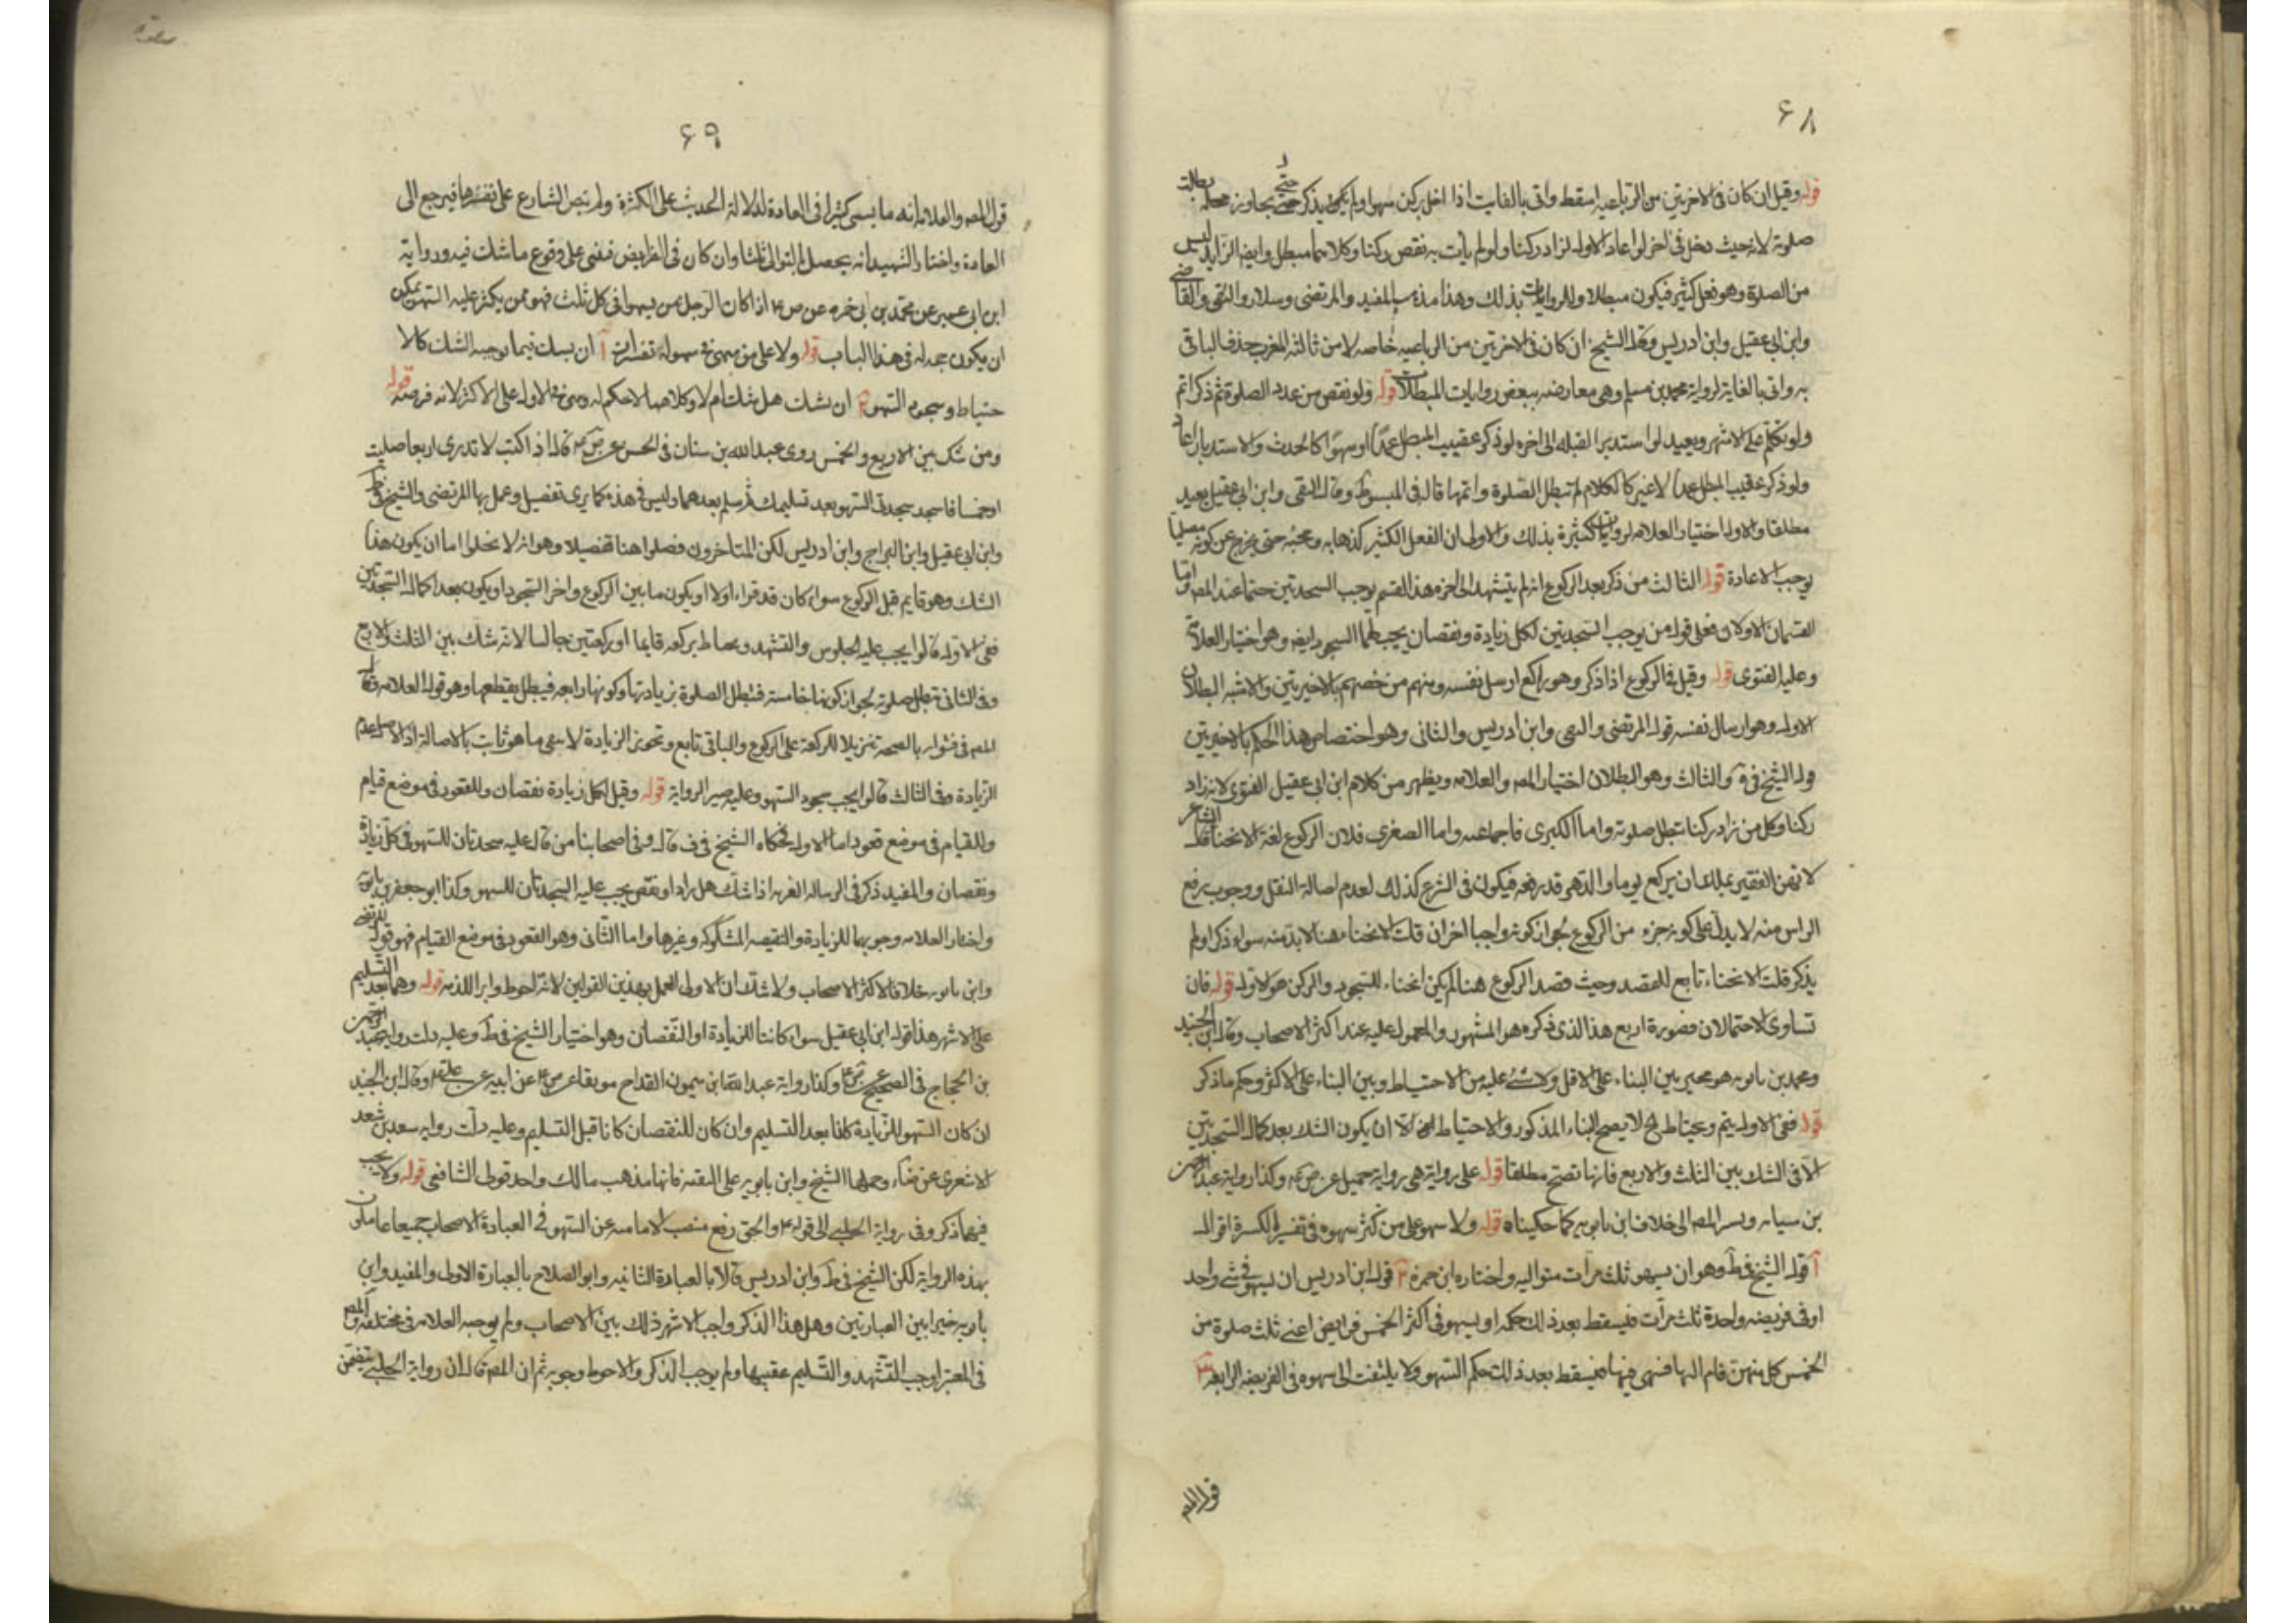 ۶۸
قوله وقيل ان كان فى الاخرتين من الرباعيه اسقط واتى بالفايت اذا اخل بركن سهوا ولم يذكر حتى تجاوز محله بطلت
صلوته لانه حيث دخل فى اخر لو اعاد الاول لزاد ركنا ولو لم يأت به نقص ركنا وكلاهما مبطل وايضا الزايد ليس
من الصلوة وهو فعل كثير فيكون مبطلا وللروايات بذلك وهذا مذهب المفيد والمرتضى وسلار والتقى والقاضى
وابن ابى عقيل وابن ادريس وقال الشيخ ان كان فى الاخرتين من الرباعيه خاصه لا من ثالثه المغرب حذف الباقى
به واتى بالفايه لرواية محمد بن مسلم وهى معارضه ببعض روايات المبطلات قوله ولو نقص من عدد الصلوة ثم ذكر اتم
ولو تكلم على الاشهر ويعيد لو استدبر القبله الى اخره لو ذكر عقيب المبطل عمدا او سهوا كالحدث والاستدبار اعاد
ولو ذكر عقيب المبطل عمدا لا غير كالكلام لم تبطل الصلوة واتمها قاله فى المبسوط وقال التقى وابن ابى عقيل يعيد
مطلقا والاول اختيار العلامه لروايات كثيرة بذلك والاولى ان الفعل الكثير كذهابه ومجيئه حتى يخرج عن كونه مصليا
يوجب الاعادة قوله الثالث من ذكر بعد الركوع انه لم يتشهد الى اخره هذا القسم يوجب السجدتين حتما عند المصـ واما
القسمان الاولان فعلى قول من يوجب السجدتين لكل زيادة ونقصان يجب لهما السجود ايضا وهو اختيار العلامة
وعليه الفتوى قوله وقيل فى الركوع اذا ذكر وهو راكع ارسل نفسه ومنهم من خصهم بالاخيرتين والاشبه البطلان
الاول وهو ارسال نفسه قول المرتضى وابن ادريس والثانى وهو اختصاص هذا الحكم بالاخيرتين
قول الشيخ فى والثالث وهو البطلان اختيار المصـ والعلامه ويظهر من كلام ابن ابى عقيل الفتوى لانه زاد
ركنا وكل من زاد ركنا تبطل صلوته واما الكبرى فاجماعيه واما الصغرى فلان الركوع لغة الانحناء قال الشاعر
لا تهن الفقير علك ان تركع يوما والدهر قد رفعه فيكون فى الشرع كذلك لعدم اصالة النقل ووجوب رفع
الراس منه لا يدل على كونه جزء من الركوع لجواز كونه واجبا اخر ان قلت الانحناء هنا لابد منه سواء ذكر او لم
يذكر قلت الانحناء تابع للقصد وحيث قصد الركوع هنا لم يكن انحناء للسجود والركن هو الاول قوله فان
تساوى الاحتمالان فصورة اربع هذا الذى ذكره هو المشهور والمعمول عليه عند اكثر الاصحاب وقال ابن الجنيد
ومحمد بن بابويه هو مخير بين البناء على الاقل ولا شئ عليه من الاحتياط وبين البناء على الاكثر وحكم ما ذكر
قوله ففى الاول يتم ويحتاط لا يصح البناء المذكور والاحتياط الا ان يكون الشك بعد كمال السجدتين
الا فى الشك بين الثلث والاربع فانها تصح مطلقا قوله على رواية هى رواية جميل عن ص ع وكذا رواية عبد الرحمن
بن سيابه ويشير المصـ الى خلاف ابن بابويه كما حكيناه قوله ولا سهو على من كثر سهوه فى تفسير الكثرة اقوال
آ قول الشيخ فى ط وهو ان يسهو ثلث مرات متواليه واختاره ابن حمزة ٢ قول ابن ادريس ان يسهو فى شئ واحد
او فى فريضه واحدة ثلث مرات فيسقط بعد ذلك حكمه او يسهو فى اكثر الخمس فرايض اعنى ثلث صلوة من
الخمس كل منهن قام اليها فسهى فيها فيسقط بعد ذلك حكم السهو ولا يلتفت الى سهوه فى الفريضه الرابعه ٣
قول المصـ
۶۹
قول المصـ والعلامه انه ما يسمى كثيرا فى العادة لدلالة الحديث على الكثرة ولم ينص الشارع على تفسيرها فيرجع الى
العادة واختار الشهيد انه يحصل بالتوالى ثلثا وان كان فى الفرايض فبنى على وقوع ما شك فيه ورواية
ابن ابى عمير عن محمد بن ابى حمزه عن ص ع اذا كان الرجل ممن يسهوا فى كل ثلث فهو ممن يكثر عليه السهو يمكن
ان يكون حجه له فى هذا الباب قوله ولا على من سهى فى سهوه له تفسيرات آ ان يشك فيما توجبه الشك كالا
حتياط وسجود السهو ٢ ان يشك هل شك ام لا وكلاهما لا حكم له ويبنى فى الاول على الاكثر لانه فرضه قوله
ومن شك بين الاربع والخمس روى عبد الله بن سنان فى الحسن عن ص ع قال اذا كنت لا تدرى اربعا صليت
او خمسا فاسجد سجدتى السهو بعد تسليمك ثم سلم بعدهما وليس فى هذه كما يرى تفصيل وعمل بها المرتضى والشيخ فى ط
وابن ابى عقيل وابن البراج وابن ادريس لكن المتاخرون فصلوا هنا تفصيلا وهو انه لا يخلوا اما ان يكون هذا
الشك وهو قايم قبل الركوع سواء كان قد قراء اولا او يكون ما بين الركوع واخر السجود او يكون بعد اكمال السجدتين
ففى الاول قالوا يجب عليه الجلوس والتشهد ويحتاط بركعه قايما او ركعتين جالسا لانه شك بين الثلث والاربع
وفى الثانى تبطل صلوته لجواز كونها خامسه فتبطل الصلوة بزيادتها وكونها رابعه فيبطل بقطعها وهو قول العلامه وقال
المصـ فى فتواه بالصحه تنزيلا للركعة على الركوع والباقى تابع وتجويز الزيادة لا ينفى ما هو ثابت بالاصالة اذ الاصل عدم
الزيادة وفى الثالث قالوا يجب سجود السهو وعليه الرواية قوله وقيل لكل زيادة نقصان وللقعود فى موضع قيام
وللقيام فى موضع قعود اما الاول فحكاه الشيخ فى ف قال وفى اصحابنا من قال عليه سجدتان للسهو فى كل زيادة
ونقصان والمفيد ذكر فى الرساله الغريه اذا شك هل زاد او نقص يجب عليه السجدتان للسهو وكذا ابو جعفر بن بابويه
واختار العلامه وجوبهما للزيادة والنقيصه المشكوكه وغيرها واما الثانى وهو القعود فى موضع القيام فهو قول المرتضى
وابن بابويه خلافا لاكثر الاصحاب ولا شك ان الاولى العمل بهذين القولين لانه احوط وابرا للذمه قوله وهما بعد التسليم
على الاشهر هذا قول ابن ابى عقيل سواء كانتا للزيادة او النقصان وهو اختيار الشيخ فى ط وعليه دلت رواية عبد الرحمن
بن الحجاج فى الصحيح عن ص ع وكذا رواية عبد الله بن ميمون القداح موثقا عن ص ع عن ابيه عن على ع وقال ابن الجنيد
ان كان السهو للزيادة كانا بعد التسليم وان كان للنقصان كانا قبل التسليم وعليه دلت روايه سعد بن سعد
الاشعرى عن ضاء وحملها الشيخ وابن بابويه على التقيه فانها مذهب مالك واحد قولى الشافعى قوله ولا يجب
فيهما ذكر وفى رواية الحلبى الى قوله والحق رفع منصب الامامه عن السهو فى العبادة الاصحاب جميعا عاملون
بهذه الرواية لكن الشيخ فى ط وابن ادريس قالا بالعبادة الثانيه وابو الصلاح بالعبارة الاولى والمفيد وابن
بابويه خيرا بين العبارتين وهل هذا الذكر واجب الاشهر ذلك بين الاصحاب ولم يوجبه العلامه فى مختلفه والمصـ
فى المعتبر اوجب التشهد والتسليم عقيبها ولم يوجب الذكر والاحوط وجوبه ثم ان المصـ قال ان رواية الحلبى يتضمن